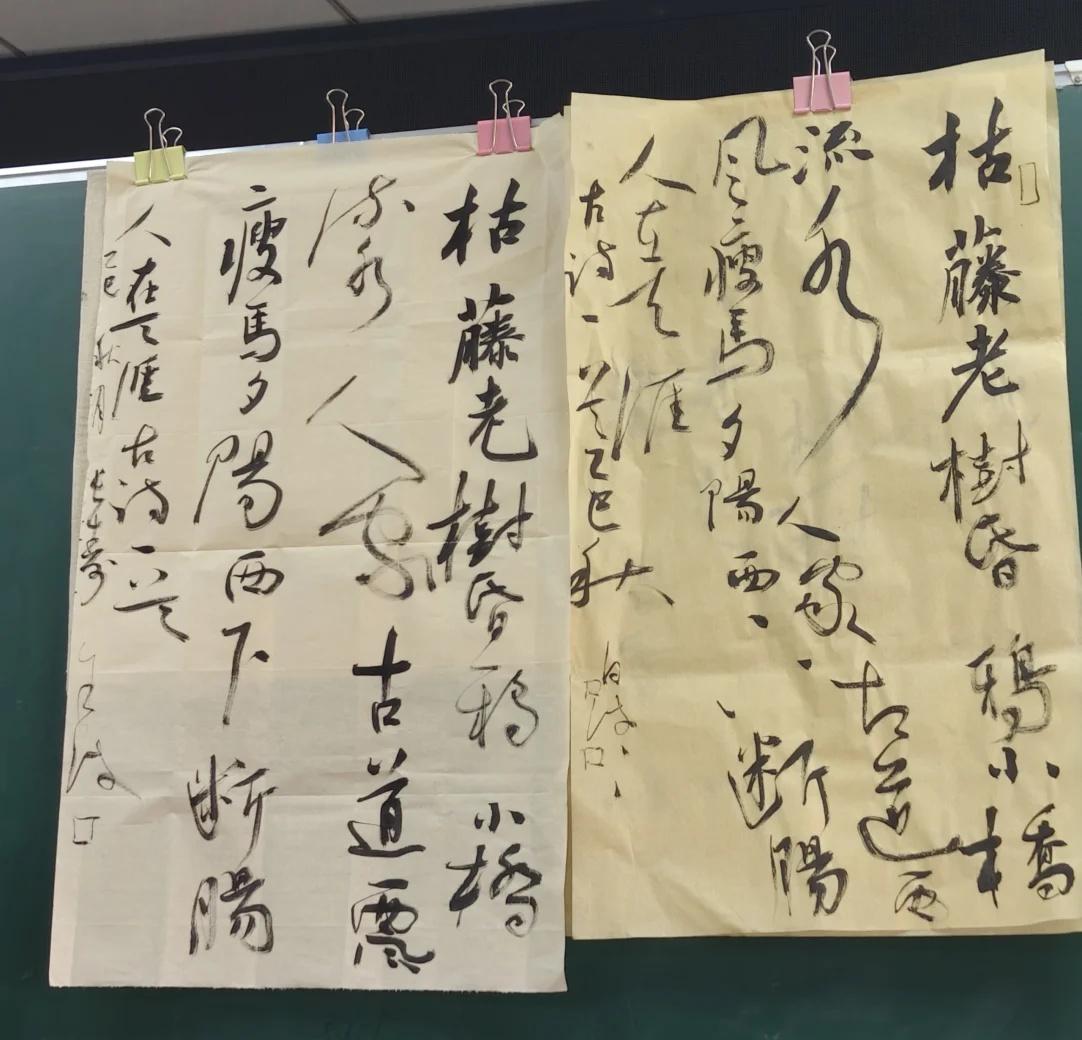 枯藤老樹昏鴉小橋
流水人家古道西
風瘦馬夕陽西下斷腸
人在天涯
古詩一首乙巳秋
枯藤老樹昏鴉小橋
流水人家古道西風
瘦馬夕陽西下斷腸
人在天涯古詩一首
乙巳秋月